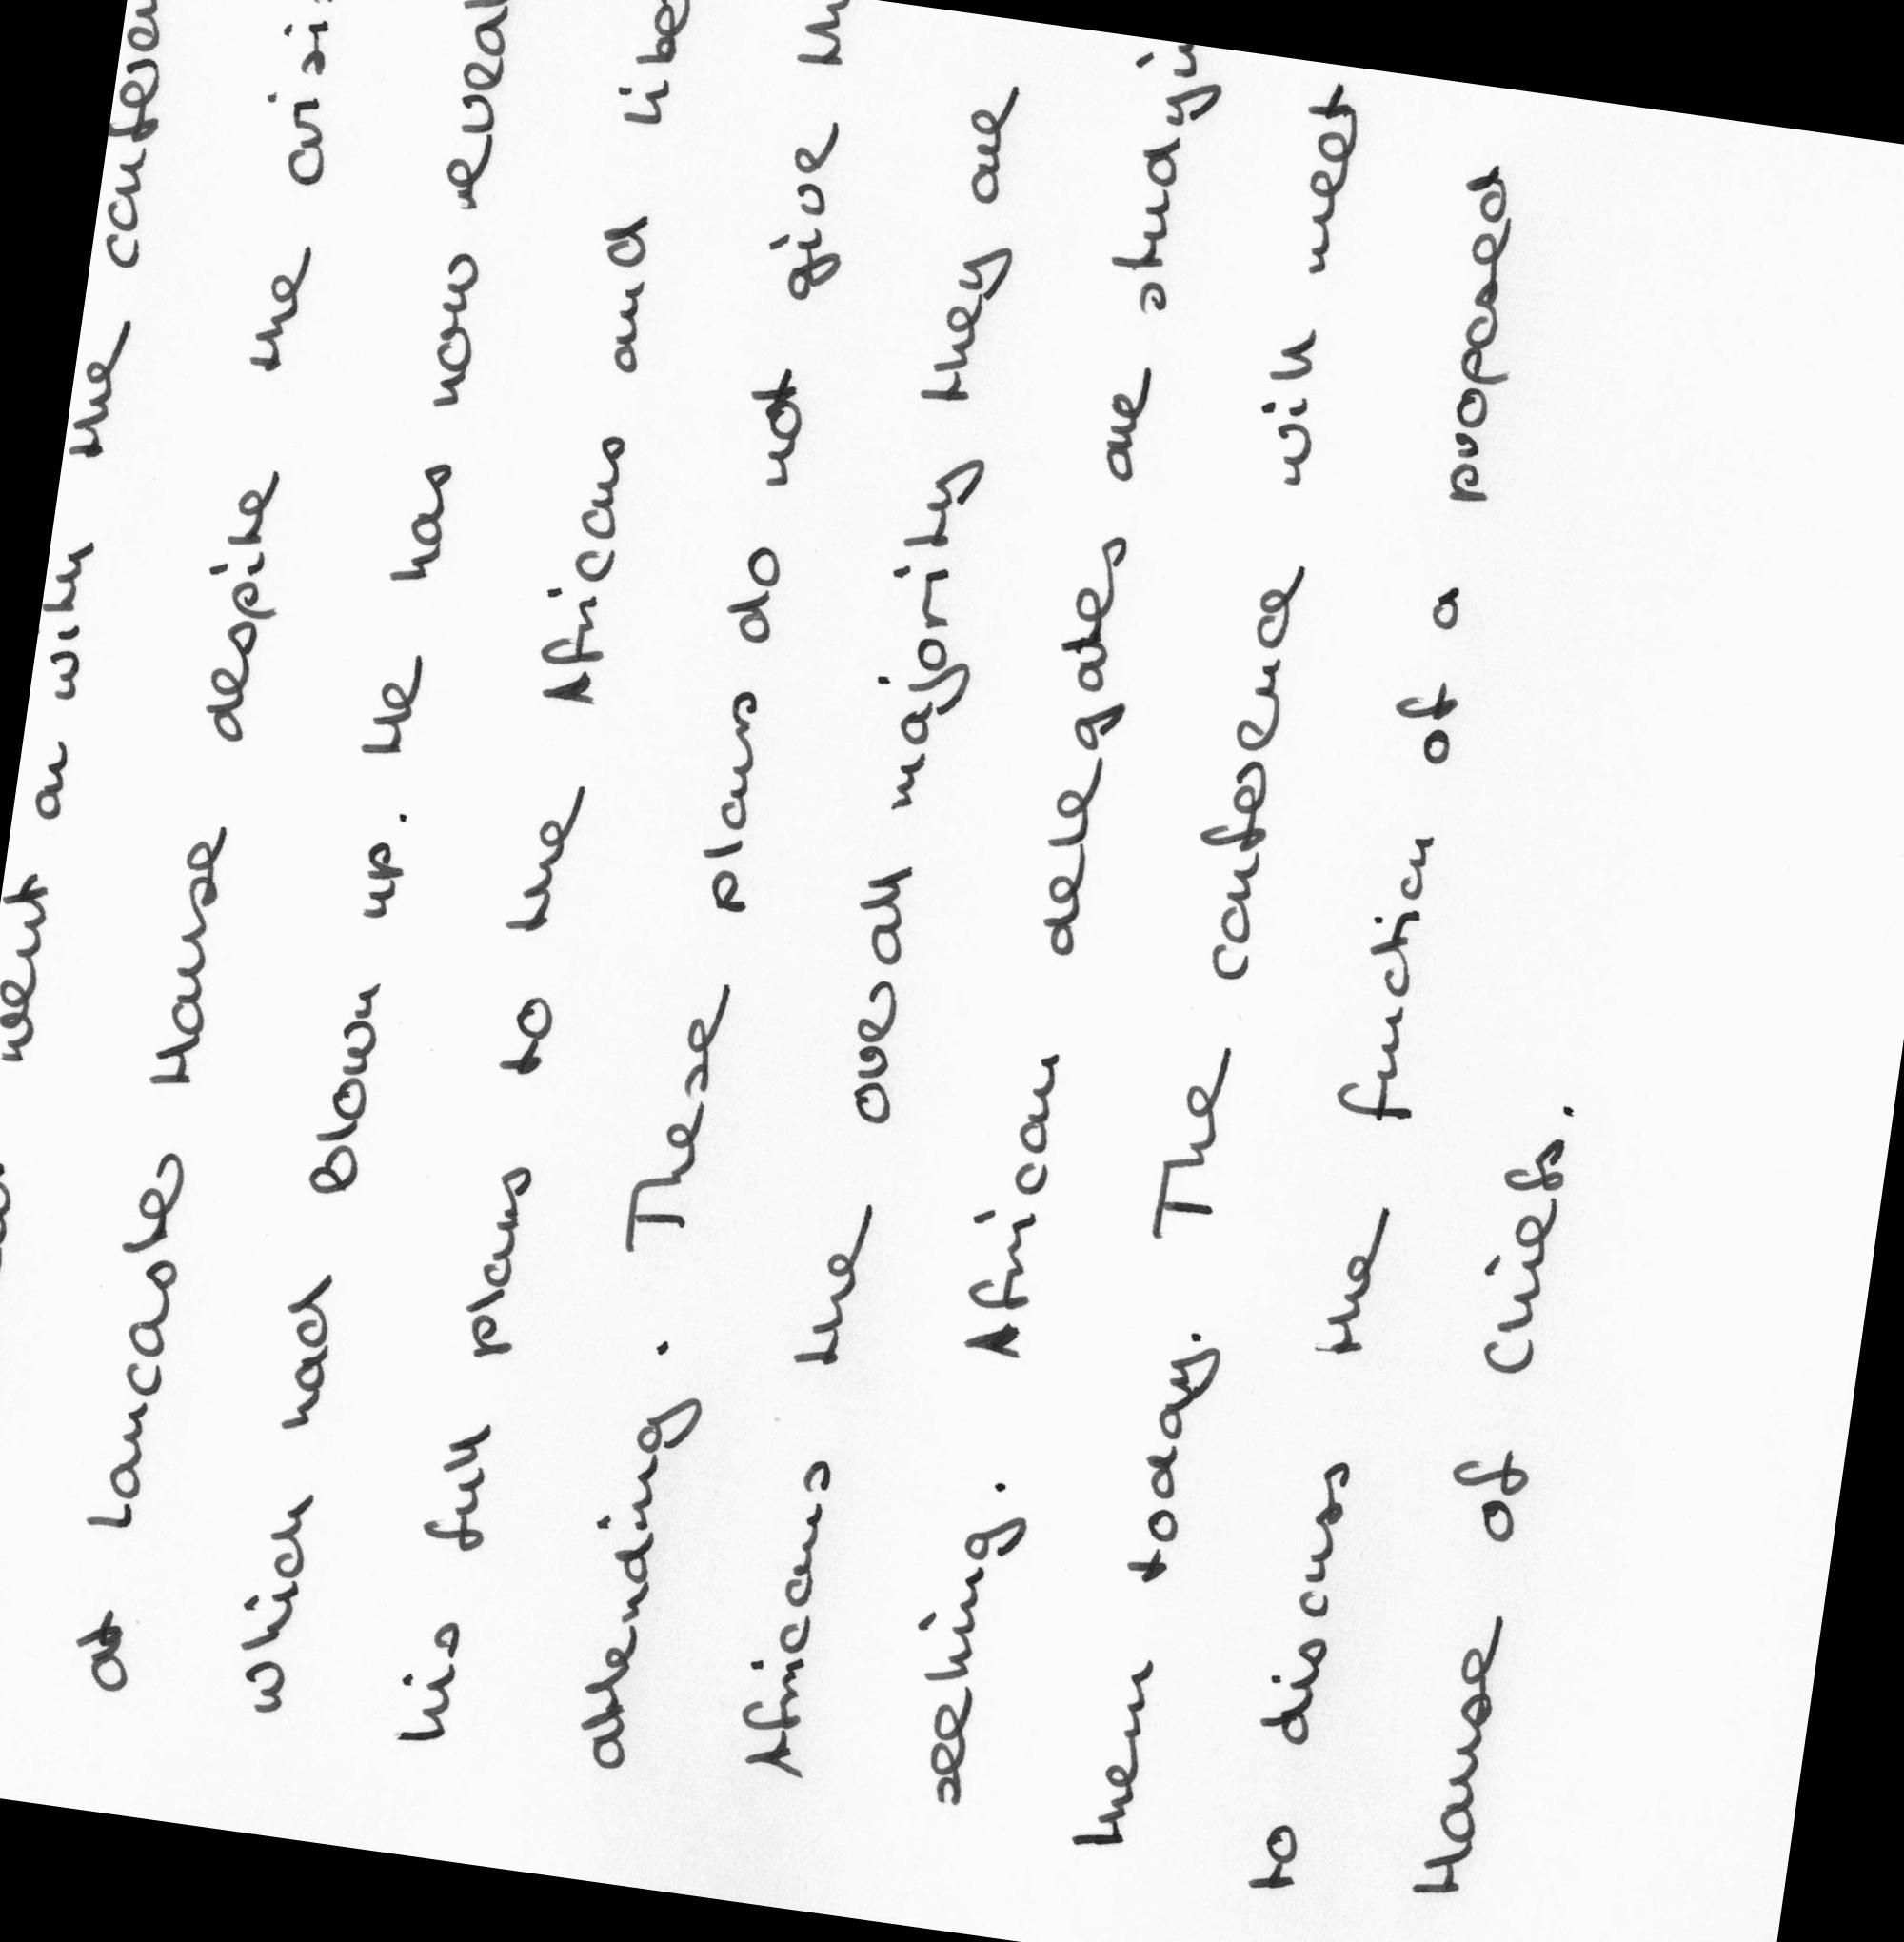 went on with the confer
at Lancaster House despite the crisi
which had blown up. He has now reveal
his full plans to the Africans and Libe
attending. These plans do not give th
Africans the overall majority they are
seeking. African delegates are studyin
them today. The conference will meet
to discuss the function of a proposed
House of Chiefs.